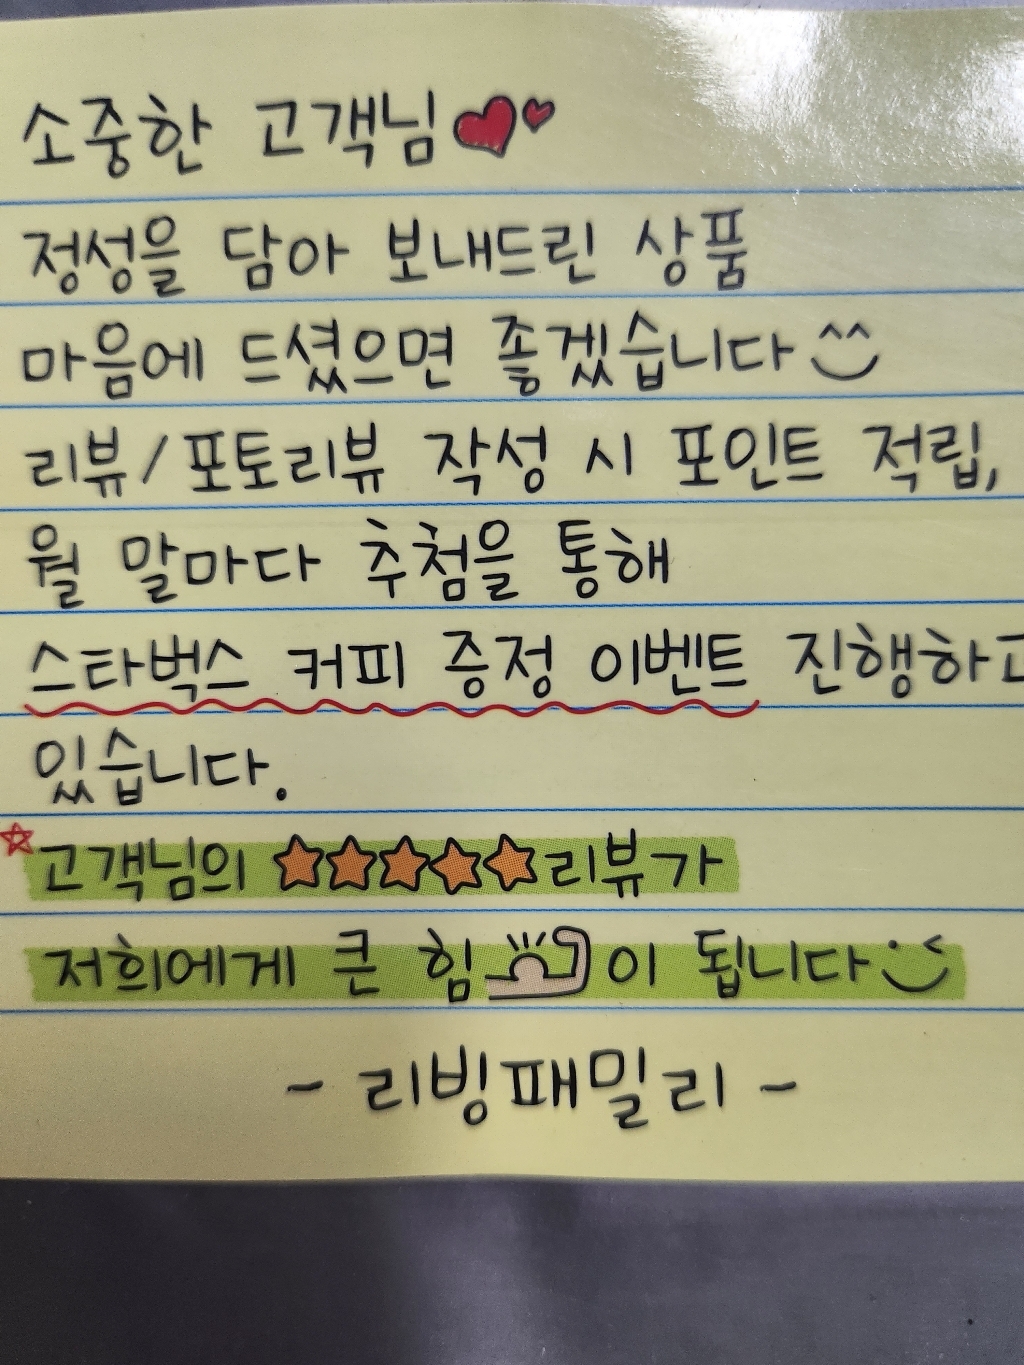 소중한 고객님
정성을 담아 보내드린 상품
마음에 드셨으면 좋겠습니다 ^^
리뷰/포토리뷰 작성 시 포인트 적립,
월 말마다 추첨을 통해
스타벅스 커피 증정 이벤트 진행하고
있습니다.
고객님의 ★★★★★리뷰가
저희에게 큰 힘이 됩니다
- 리빙패밀리 -